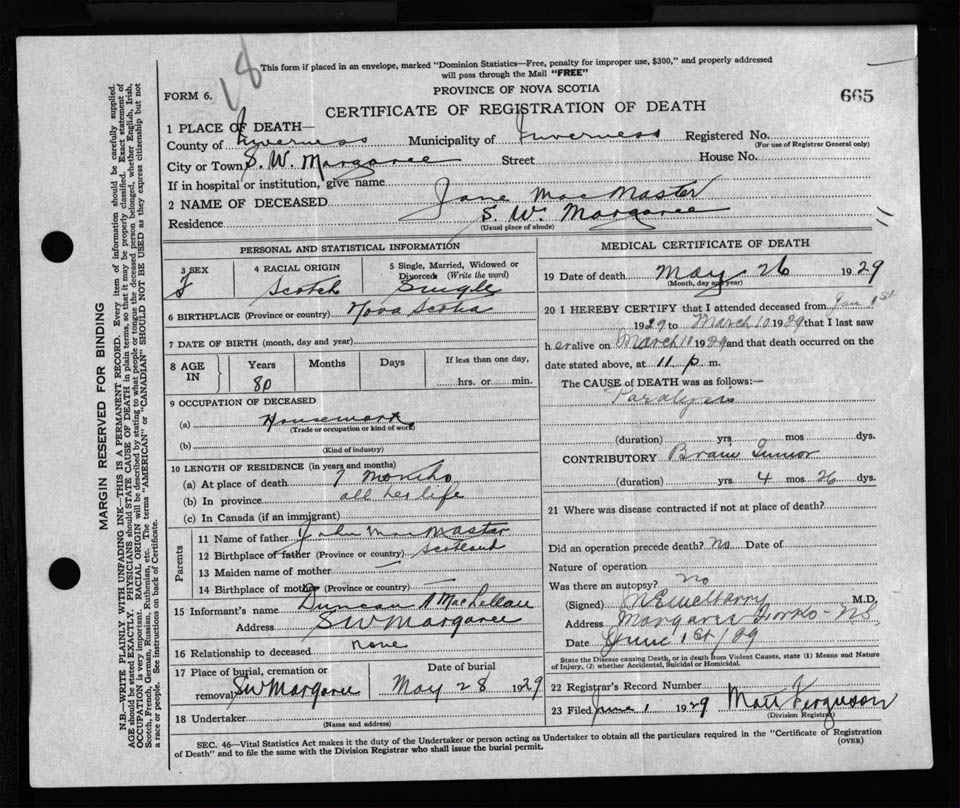 18
This form if placed in an envelope, marked "Dominion Statistics—Free, penalty for improper use, $300," and properly addressed
will pass through the Mail "FREE"
FORM 6.
PROVINCE OF NOVA SCOTIA
665
CERTIFICATE OF REGISTRATION OF DEATH
1 PLACE OF DEATH—
County of Inverness Municipality of Inverness Registered No.
(For use of Registrar General only)
City or Town S. W. Margaree Street House No.
If in hospital or institution, give name
2 NAME OF DECEASED Jane MacMaster
Residence S. W. Margaree
(Usual place of abode)
PERSONAL AND STATISTICAL INFORMATION
3 SEX 4 RACIAL ORIGIN 5 Single, Married, Widowed or
Divorced (Write the word)
F Scotch Single
6 BIRTHPLACE (Province or country) Nova Scotia
7 DATE OF BIRTH (month, day and year)
8 AGE IN Years Months Days If less than one day,
80 hrs. or min.
9 OCCUPATION OF DECEASED
(a) Housework
(Trade or occupation or kind of work)
(b)
(Kind of industry)
10 LENGTH OF RESIDENCE (in years and months)
(a) At place of death 7 months
(b) In province all her life
(c) In Canada (if an immigrant)
Parents
11 Name of father John MacMaster
12 Birthplace of father (Province or country) Scotland
13 Maiden name of mother —
14 Birthplace of mother (Province or country) —
15 Informant's name Duncan A MacLellan
Address S W Margaree
16 Relationship to deceased none
17 Place of burial, cremation or Date of burial
removal SW Margaree May 28 1929
18 Undertaker
(Name and address)
MEDICAL CERTIFICATE OF DEATH
19 Date of death May 26 1929
(Month, day and year)
20 I HEREBY CERTIFY that I attended deceased from Jan 1st
1929 to March 10 1929 that I last saw
her alive on March 11 1929 and that death occurred on the
date stated above, at 11 p m.
The CAUSE OF DEATH was as follows:—
Paralysis
(duration) yrs. mos. dys.
CONTRIBUTORY Brain Tumor
(duration) yrs. 4 mos. 26 dys.
21 Where was disease contracted if not at place of death?
Did an operation precede death? No Date of
Nature of operation
Was there an autopsy? No
(Signed) M.D.
Address Margaree Forks - NS
Date June 1st/29
State the Disease causing Death, or in death from Violent Causes, state (1) Means and Nature
of Injury, (2) whether Accidental, Suicidal or Homicidal.
22 Registrar's Record Number
23 Filed June 1 1929 Ferguson
(Division Registrar)
SEC. 46—Vital Statistics Act makes it the duty of the Undertaker or person acting as Undertaker to obtain all the particulars required in the "Certificate of Registration
of Death" and to file the same with the Division Registrar who shall issue the burial permit.
(OVER)
MARGIN RESERVED FOR BINDING
N.B.—WRITE PLAINLY WITH UNFADING INK—THIS IS A PERMANENT RECORD. Every item of information should be carefully supplied.
AGE should be stated EXACTLY. PHYSICIANS should STATE CAUSE OF DEATH in plain terms, so that it may be properly classified. Exact statement of
OCCUPATION is very important. RACIAL ORIGIN will be described by stating to what people or tongue the deceased person belonged, whether English, Irish,
Scotch, French, German, Russian, Ruthenian, etc. The terms "AMERICAN" or "CANADIAN" SHOULD NOT BE USED as they express citizenship but not
a race or people. See instructions on back of Certificate.